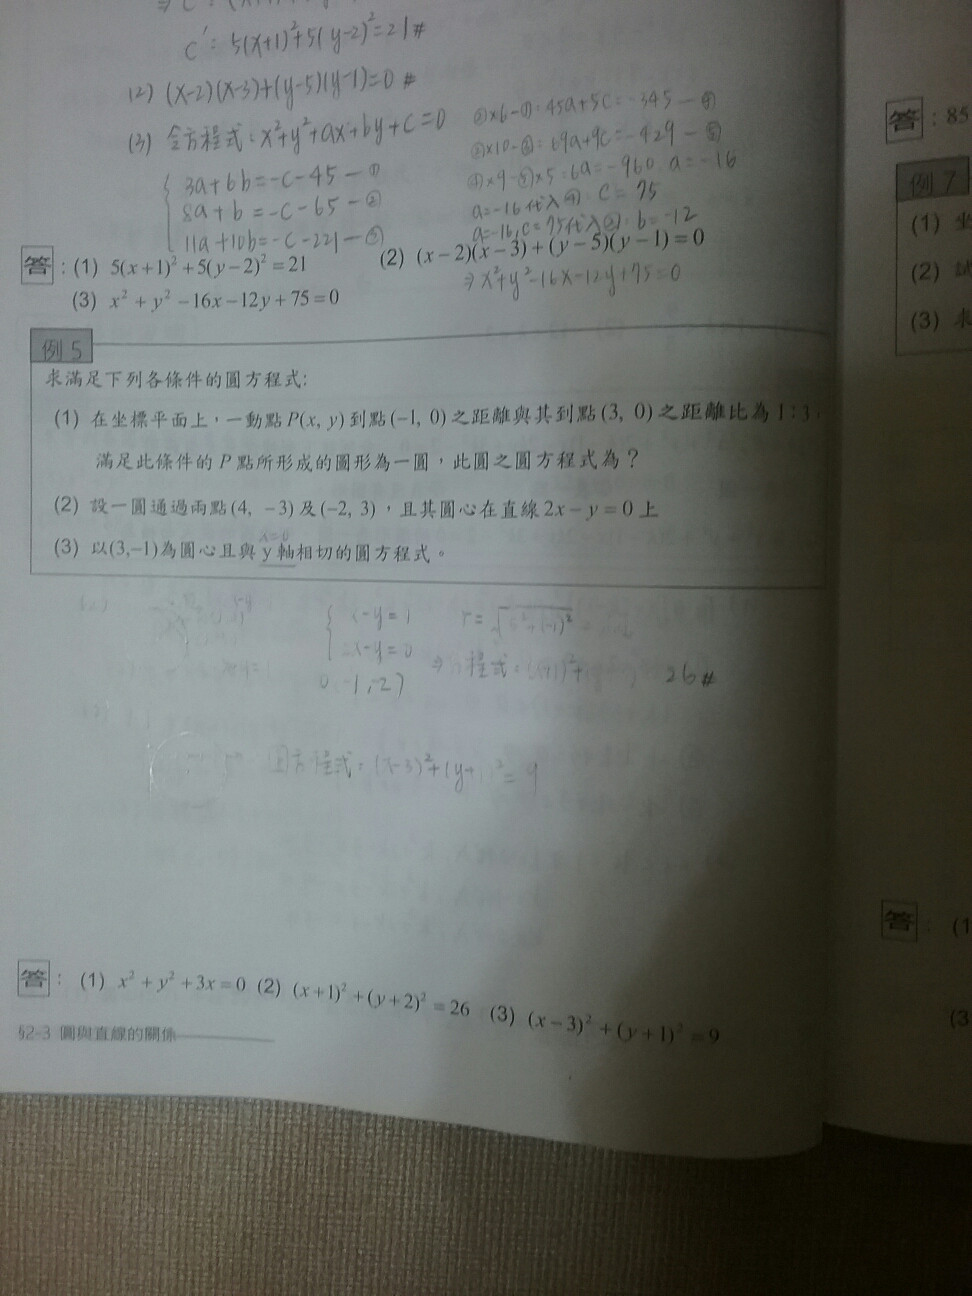 C' = 5(x+1)²+5(y-2)²=21#
(2) (x-2)(x-3)+(y-5)(y-1)=0 #
(3) 令方程式:x²+y²+ax+by+c=0
3a+6b=-c-45-①
8a+b=-c-65-②
11a+10b=-c-221-③
②x6-①:45a+5c=-345-④
②x10-③:69a+9c=-429-⑤
④x9-⑤x5=6a=-960 a=-16
a=-16代入④: c=75
a=-16,c=75代入②: b=-12
答:(1) 5(x+1)²+5(y-2)²=21 (2) (x-2)(x-3)+(y-5)(y-1)=0
⇒x²+y²-16x-12y+75=0
(3) x²+y²-16x-12y+75=0
例 5
求滿足下列各條件的圓方程式:
(1) 在坐標平面上,一動點P(x, y)到點(-1, 0)之距離與其到點(3, 0)之距離比為1:3,
滿足此條件的P點所形成的圖形為一圓,此圓之圓方程式為?
(2) 設一圓通過兩點(4, -3)及(-2, 3),且其圓心在直線2x-y=0上
x=0
(3) 以(3,-1)為圓心且與y軸相切的圓方程式。
x-y=1
2x-y=0
-1,-2)
r=
方程式:
26#
圓方程式:(x-3)²+(y+1)²=9
答:(1) x²+y²+3x=0 (2) (x+1)²+(y+2)²=26 (3) (x-3)²+(y+1)²=9
§2-3 圓與直線的關係
答:85
例 7
(1)
(2) 試
(3) 求
答:(1
(3